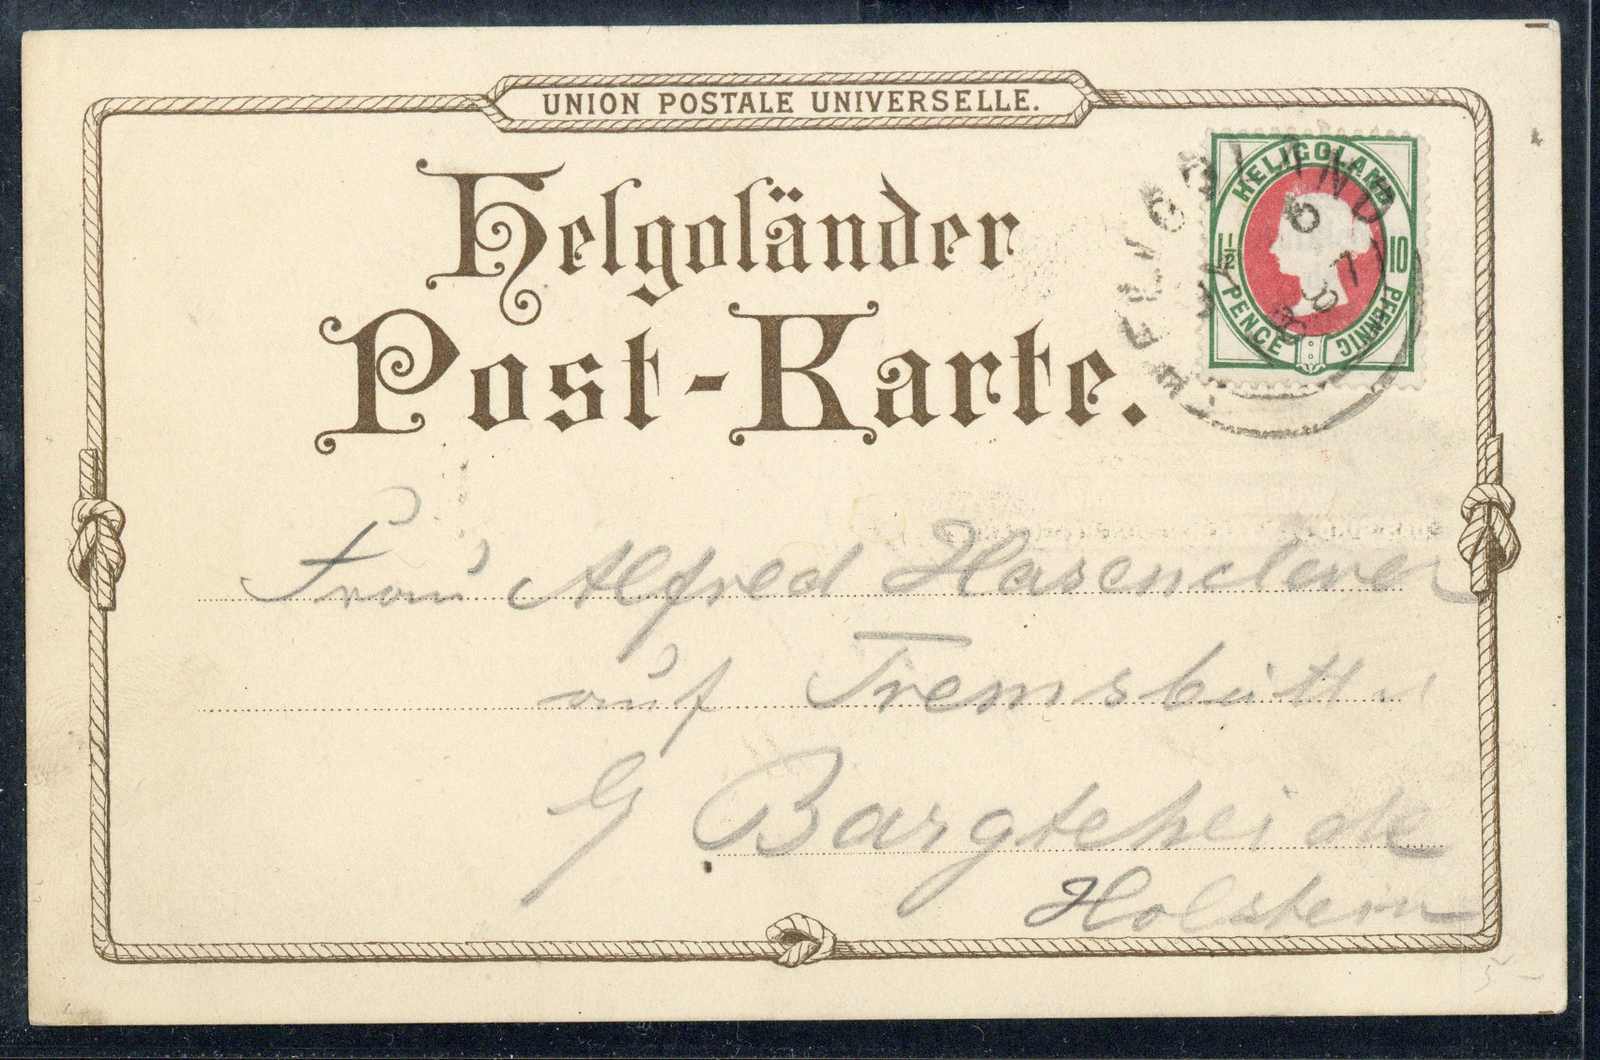 UNION POSTALE UNIVERSELLE.
Helgoländer
Post-Karte.
HELIGOLAND
1½ PENCE
10 PFENNIG
HELIGOLAND
Frau Alfred Hasenclever
auf Tremsbüttel
Bargteheide
Holstein